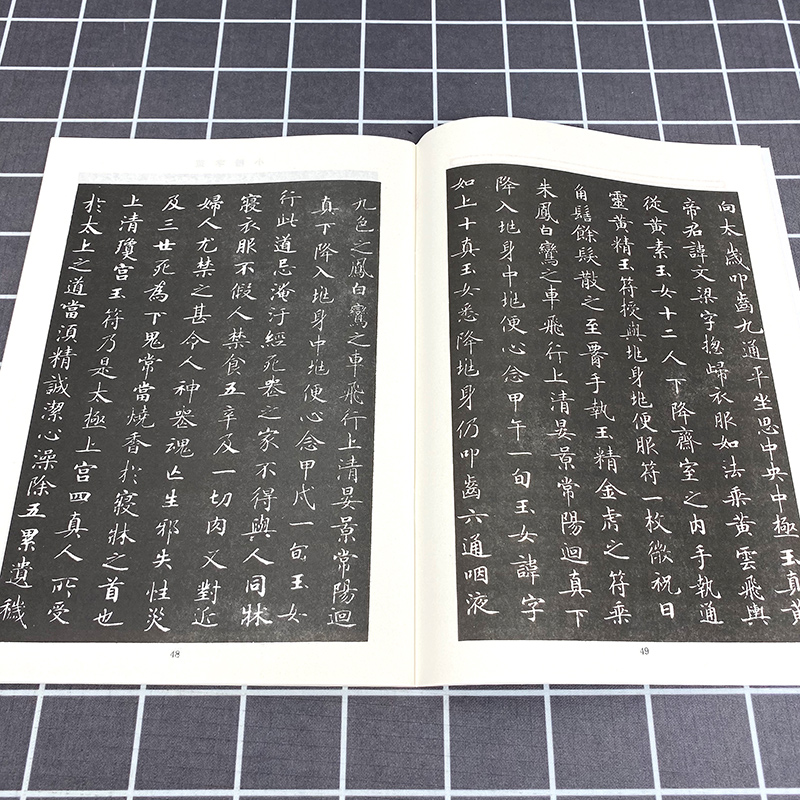 九色之鳳白鸞之車飛行上清晏景常陽迴
真下降入兆身中兆便心念甲戌一旬玉女
行此道忌淹汙經死喪之家不得與人同牀
寢衣服不假人禁食五辛及一切肉又對近
婦人尤禁之甚令人神喪魂亡生邪失性災
及三世死為下鬼常當燒香於寢牀之首也
上清瓊宮玉符乃是太極上宮四真人所受
於太上之道當須精誠潔心澡除五累遺穢
48
向太歲叩齒九通平坐思中央中極玉真黃
帝君諱文梁字總歸衣服如法乘黃雲飛輿
從黃素玉女十二人下降齋室之內手執通
靈黃精玉符授與兆身兆便服符一枚微祝曰
角髻餘髮散之至腰手執玉精金虎之符乘
朱鳳白鸞之車飛行上清晏景常陽迴真下
降入兆身中兆便心念甲午一旬玉女諱字
如上十真玉女悉降兆身仍叩齒六通咽液
49